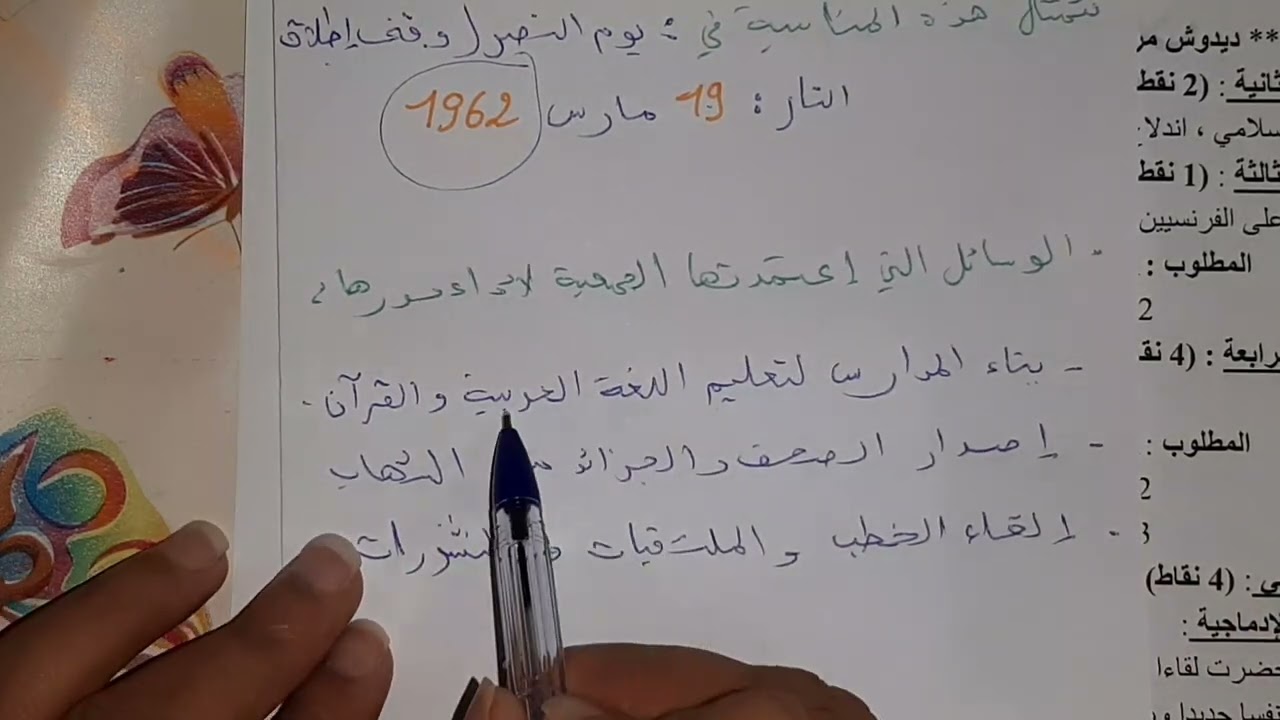 تتمثل هذه المناسبة في : يوم النصر / وقف إطلاق
النار : 19 مارس 1962
- الوسائل التي إعتمدتها الجمعية لأداء دورها ؛
- بناء المدارس لتعليم اللغة العربية و القرآن .
- إصدار الصحف و الجرائد الشهاب
- إلقاء الخطب و الملتقيات المنشورات
** ديدوش مر
ثانية : (2 نقط
سلامي ، اندلا
ثالثة : (1 نقط
على الفرنسيين
المطلوب :
2
رابعة : (4 نق
المطلوب :
2
3
ي : (4 نقاط)
لإدماجية :
حضرت لقاءا
نفسا جديدا و